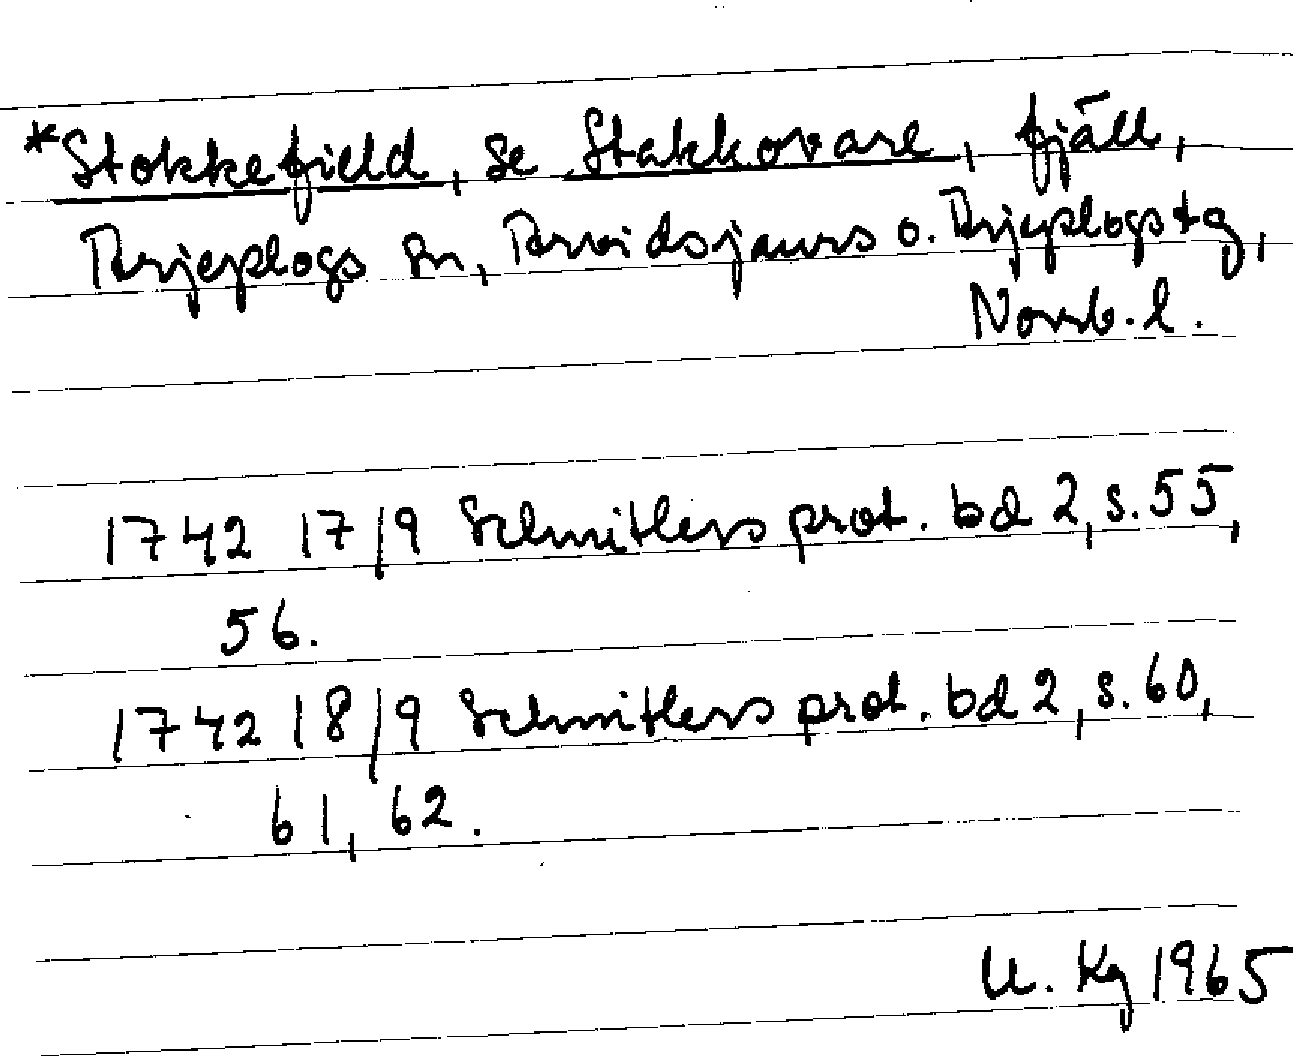 *Stokkefield, se Stakkovare, fjäll,
Arjeplogs sn, Arvidsjaurs o. Arjeplogs tg,
Norrb. l.
1742 17/9 Schnitlers prot. bd 2, s. 55,
56.
1742 18/9 Schnitlers prot. bd 2, s. 60,
61, 62.
U. Kg 1965